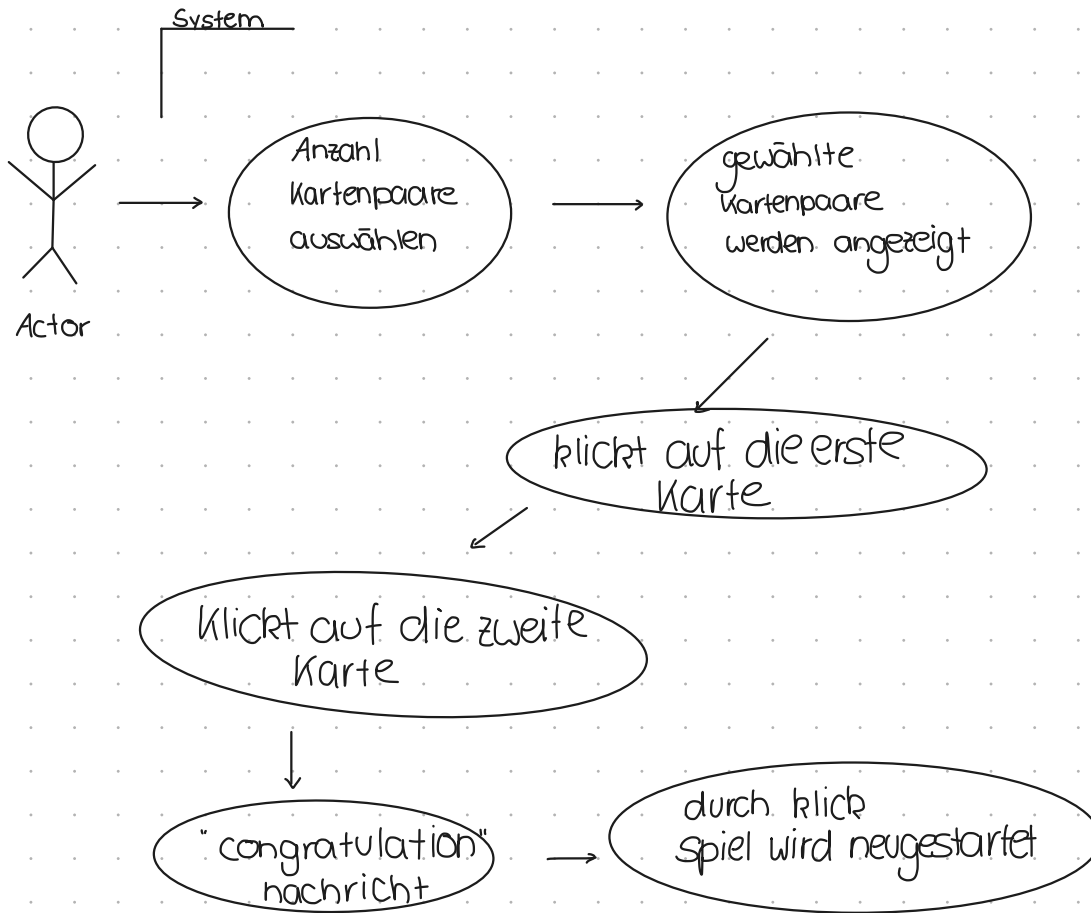 System
Anzahl
Kartenpaare
auswählen
gewählte
Kartenpaare
werden angezeigt
Actor
klickt auf die erste
Karte
Klickt auf die zweite
Karte
"congratulation"
nachricht
durch klick
spiel wird neugestartet